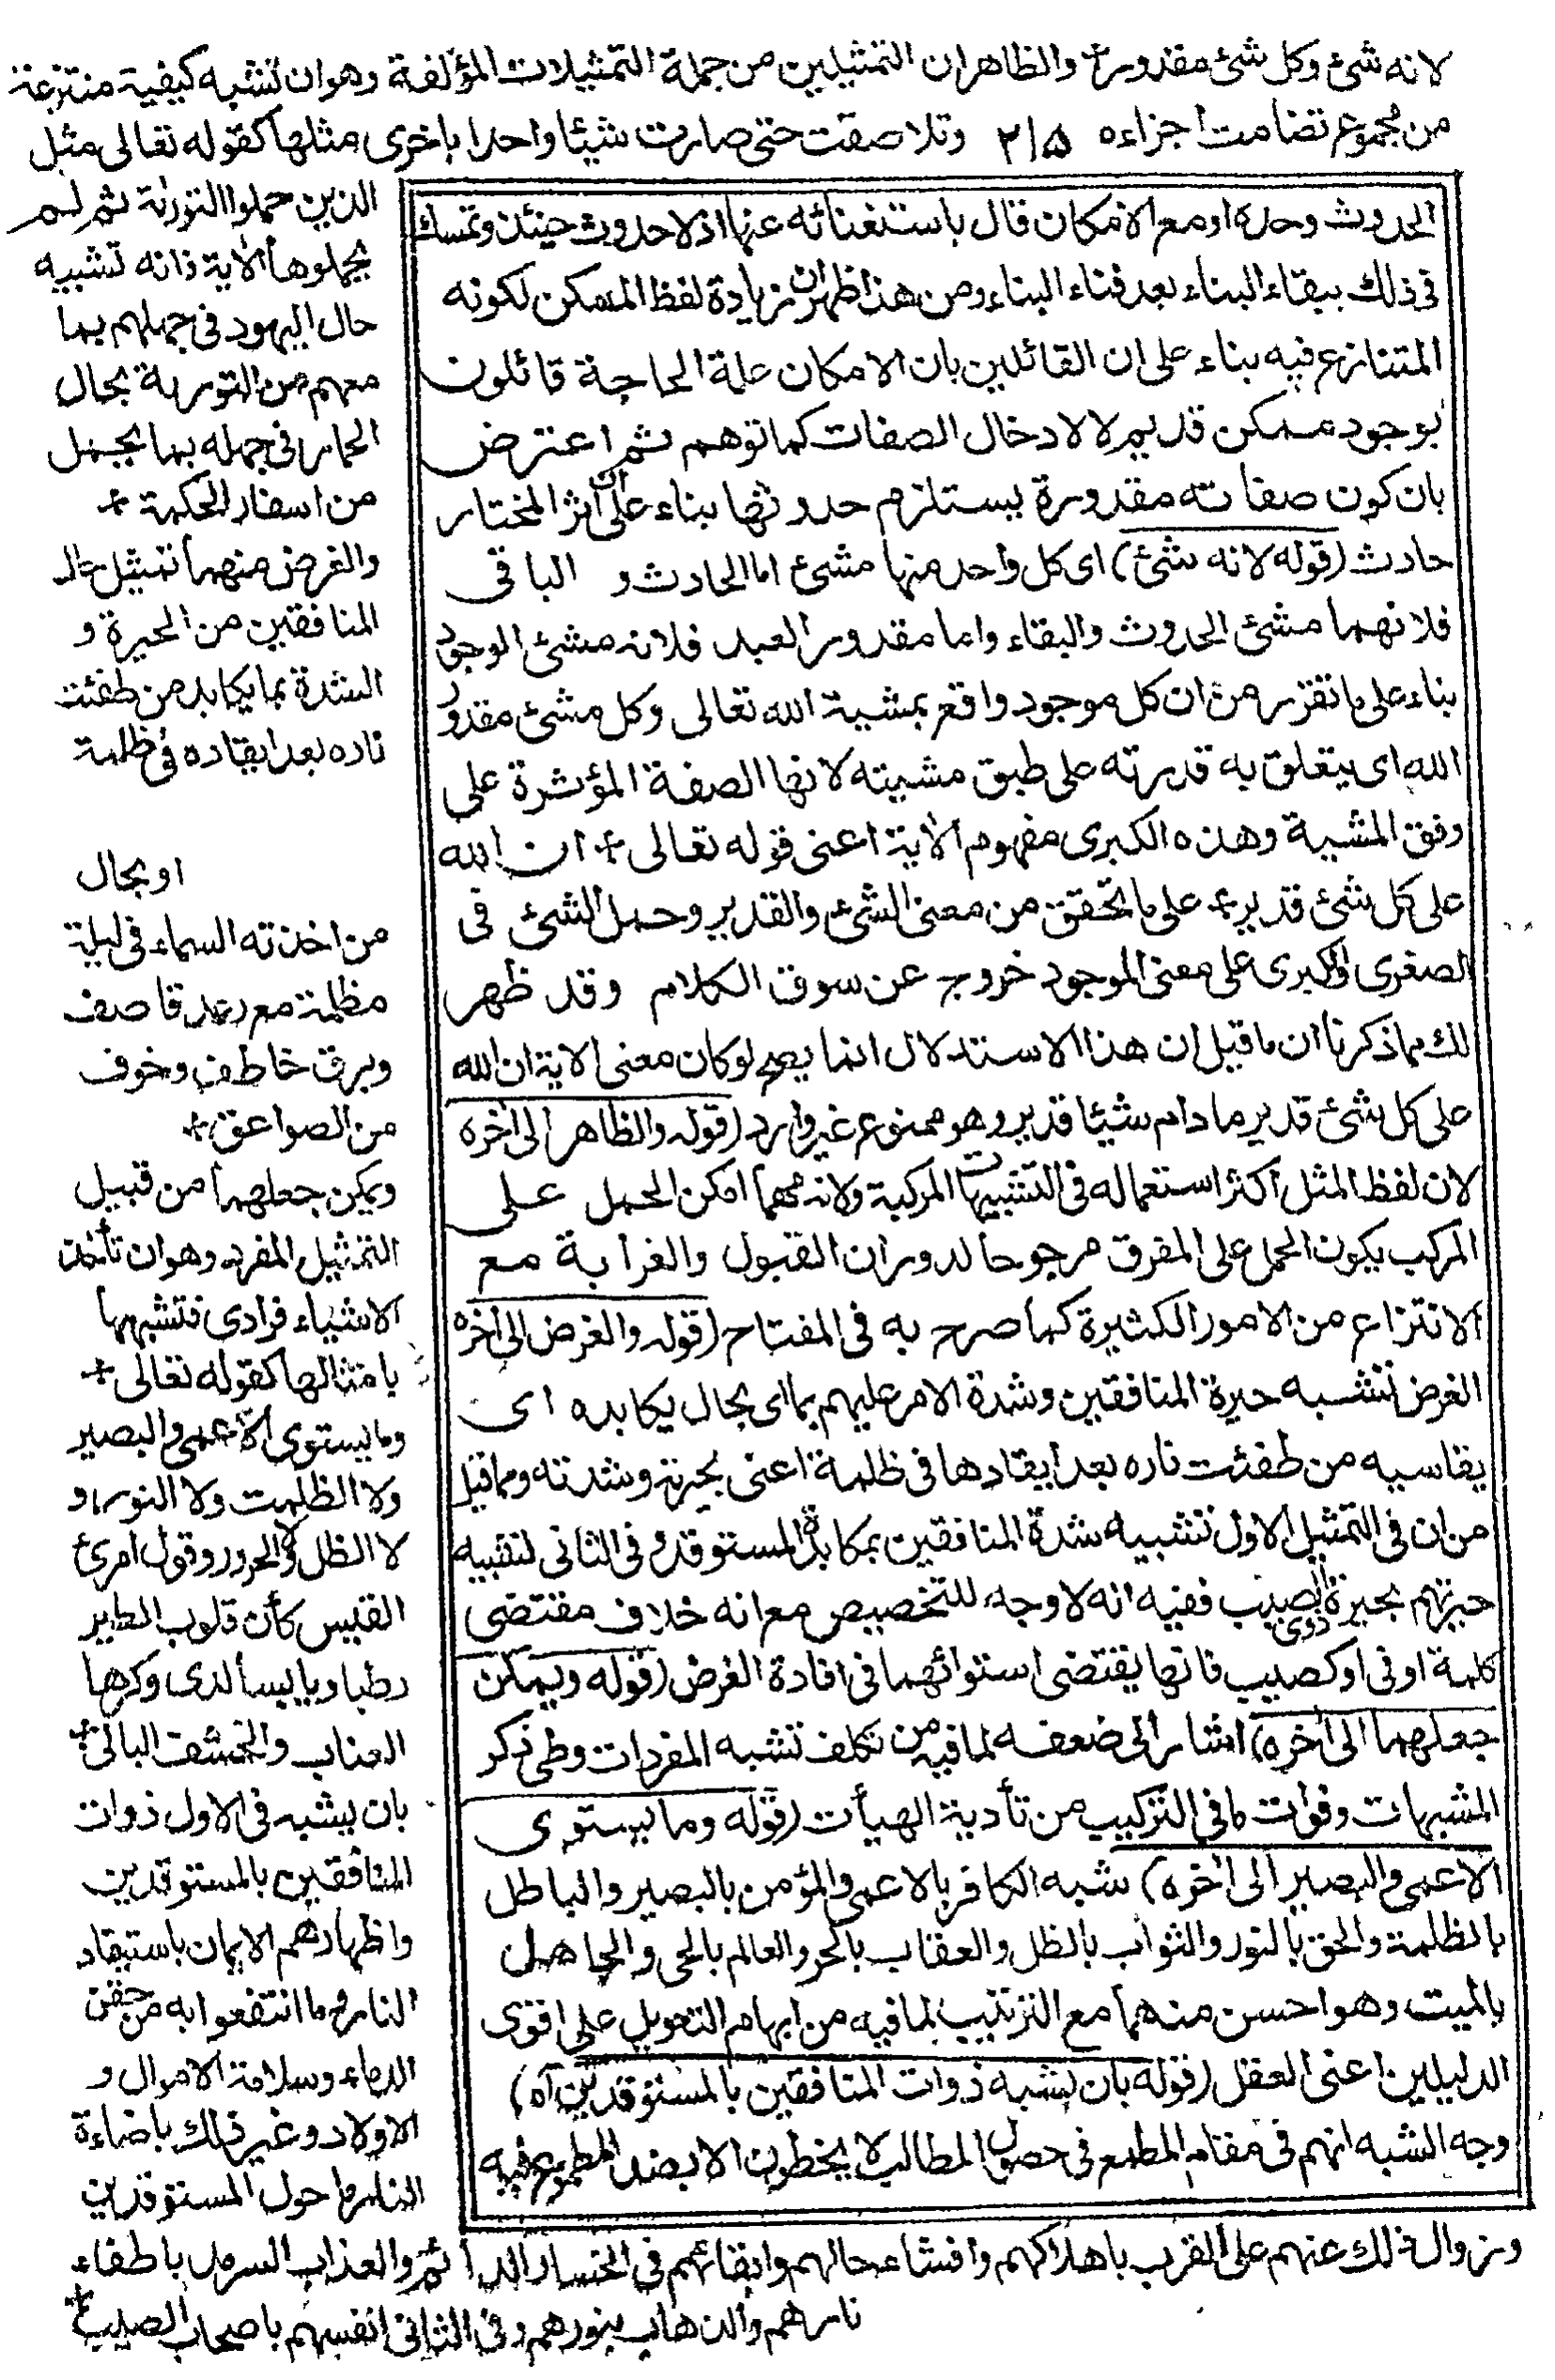 لانه شئ وكل شئ مقدور + والظاهر ان التمثيلين من جملة التمثيلات المؤلفة وهو ان تشبه كيفية منتزعة
من مجموع تضامت اجزاءه ٢١٥ وتلاصقت حتى صارت شيئا واحدا باخرى مثلها كقوله تعالى مثل
الذين حملوا التورٰىة ثم لم
يحملوها الاٰية فانه تشبيه
حال اليهود فى جهلهم بما
معهم من التورىة بحال
الحمار فى جهله بما يحمل
من اسفار الحكمة +
والغرض منهما تمثيل حال
المنافقين من الحيرة و
الشدة بما يكابد من طفئت
ناره بعد ايقاده فى ظلمة
او بحال
من اخذته السماء فى ليلة
مظلمة مع رعد قاصف
وبرق خاطف وخوف
من الصواعق +
ويمكن جعلهما من قبيل
التمثيل المفرد وهو ان تأخذ
الاشياء فرادى فتشبهها
بامثالها كقوله تعالى +
وما يستوى الاعمى والبصير
ولا الظلمت ولا النور و
لا الظل ولا الحرور وقول امرئ
القيس كأن قلوب الطير
رطبا ويابسا لدى وكرها
العناب والحشف البالى +
بان يشبه فى الاول ذوات
المنافقين بالمستوقدين
واظهارهم الايمان باستيقاد
النار وما انتفعوا به من حقن
الدماء وسلامة الاموال و
الاولاد وغير ذلك باضاءة
النار ما حول المستوقدين
وزوال ذلك عنهم على القرب باهلاكهم وافشاء حالهم وابقائهم فى الخسار الدائم والعذاب السرمد باطفاء
نارهم والذهاب بنورهم وفى الثانى انفسهم باصحاب الصيب +
الحدوث وحده او مع الامكان قال باستغنائه عنها اذ لا حدوث حينئذ وتمسك
فى ذلك ببقاء البناء بعد فناء البناء ومن هذا ظهر ان زيادة لفظ الممكن لكونه
المتنازع فيه بناء على ان القائلين بان الامكان علة الحاجة قائلون
بوجود ممكن قديم لا لادخال الصفات كما توهم ثم اعترض
بان كون صفاته مقدورة يستلزم حدوثها بناء على ان اثر المختار
حادث (قوله لانه شئ) اى كل واحد منها مشئ اما الحادث و الباقى
فلانهما مشئ الحدوث والبقاء واما مقدور العبد فلانه مشئ الوجود
بناء على ما تقرر من ان كل موجود واقع بمشية الله تعالى وكل مشئ مقدور
الله اى يتعلق به قدرته على طبق مشيته لانها الصفة المؤثرة على
وفق المشية وهذه الكبرى مفهوم الاٰية اعنى قوله تعالى + ان الله
على كل شئ قدير + على ما تحقق من معنى الشئ والقدير وحمل الشئ فى
الصغرى والكبرى على معنى الموجود خروج عن سوق الكلام وقد ظهر
لك مما ذكرنا ان ما قيل ان هذا الاستدلال انما يصح لو كان معنى الاية ان الله
على كل شئ قدير ما دام شيئا قدير وهو ممنوع غير وارد (قوله والظاهر الى اٰخره
لان لفظ المثل اكثر استعماله فى التشبيهات المركبة ولانه مهما امكن الحمل على
المركب يكون الحمل على المفرق مرجوحا لدوران القبول والغرابة مع
الانتزاع من الامور الكثيرة كما صرح به فى المفتاح (قوله والغرض الى اٰخره
الغرض تشبيه حيرة المنافقين وشدة الامر عليهم بما اى بحال يكابده اى
يقاسيه من طفئت ناره بعد ايقادها فى ظلمة اعنى بحيرته وشدته وما قيل
من ان فى التمثيل الاول تشبيه شدة المنافقين بمكابدة المستوقد وفى الثانى تشبيه
حيرتهم بحيرة ذوى الصيب ففيه انه لا وجه للتخصيص مع انه خلاف مقتضى
كلمة او فى او كصيب فانها يقتضى استوائهما فى افادة الغرض (قوله ويمكن
جعلهما الى اٰخره) اشار الى ضعفه لما فيه من تكلف تشبه المفردات وطى ذكر
المشبهات وفوات ما فى التركيب من تأدية الهيأت (قوله وما يستوى
الاعمى والبصير الى اٰخره) شبه الكافر بالاعمى والمؤمن بالبصير والباطل
بالظلمة والحق بالنور والثواب بالظل والعقاب بالحر والعالم بالحى والجاهل
بالميت وهو احسن منهما مع الترتيب لما فيه من ابهام التعويل على اقوى
الدليلين اعنى العقل (قوله بان يشبه ذوات المنافقين بالمستوقدين اه)
وجه الشبه انهم فى مقام المطمع فى حصول المطالب لا يحظون الا بضد المطموع فيه